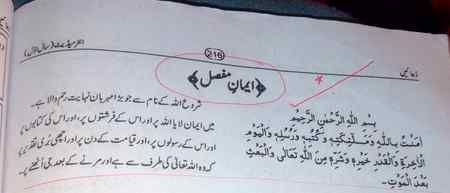 دعائیں
216
انٹرمیڈیٹ (سال اوّل)
﴿ایمانِ مفصل﴾
بِسْمِ اللهِ الرَّحْمٰنِ الرَّحِيْمِ
اٰمَنْتُ بِاللهِ وَمَلٰٓئِكَتِهٖ وَكُتُبِهٖ وَرُسُلِهٖ وَالْيَوْمِ
الْاٰخِرِ وَالْقَدْرِ خَيْرِهٖ وَشَرِّهٖ مِنَ اللهِ تَعَالٰى وَالْبَعْثِ
بَعْدَ الْمَوْتِ۔
شروع اللہ کے نام سے جو بڑا مہربان نہایت رحم والا ہے۔
میں ایمان لایا اللہ پر اور اس کے فرشتوں پر، اور اس کی کتابوں پر
اور اس کے رسولوں پر، اور قیامت کے دن پر اور اچھی بُری تقدیر پر
کہ وہ اللہ تعالٰی کی طرف سے ہے اور مرنے کے بعد جی اٹھنے پر۔